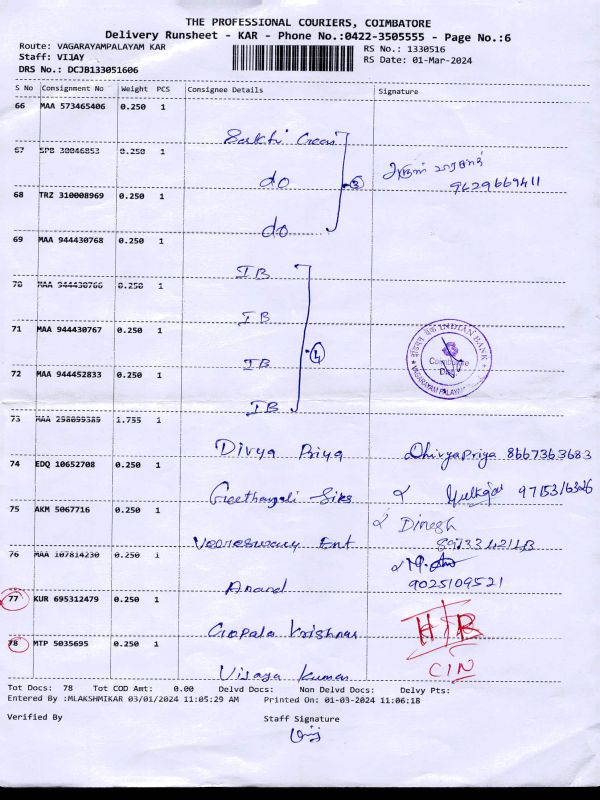 THE PROFESSIONAL COURIERS, COIMBATORE
Delivery Runsheet - KAR - Phone No.:0422-3505555 - Page No.:6
Route: VAGARAYAMPALAYAM KAR
RS No.: 1330516
Staff: VIJAY
RS Date: 01-Mar-2024
DRS No.: DCJB133051606
S No Consignment No Weight PCS Consignee Details Signature
66 MAA 573465406 0.250 1
Sakthi
67 SPB 30046853 0.250 1
do
9629669411
68 TRZ 310008969 0.250 1
do
69 MAA 944430768 0.250 1
IB
70 MAA 944430766 0.250 1
IB
71 MAA 944430767 0.250 1
IB
INDIAN BANK
VAGARAYAM PALAYAM
72 MAA 944452833 0.250 1
IB
4
73 MAA 298099389 1.755 1
Divya Priya Dhivyapriya 8667363683
74 EDQ 10652708 0.250 1
Geethanjali
75 AKM 5067716 0.250 1
Dinesh
Veereswary Ent
76 MAA 107814230 0.250 1
Anand
9025109521
77 KUR 695312479 0.250 1
Gopala Krishnan
78 MTP 5035695 0.250 1
CIN
Vijaya Kumar
Tot Docs: 78 Tot COD Amt: 0.00 Delvd Docs: Non Delvd Docs: Delvy Pts:
Entered By :MLAKSHMIKAR 03/01/2024 11:05:29 AM Printed On: 01-03-2024 11:06:18
Verified By Staff Signature